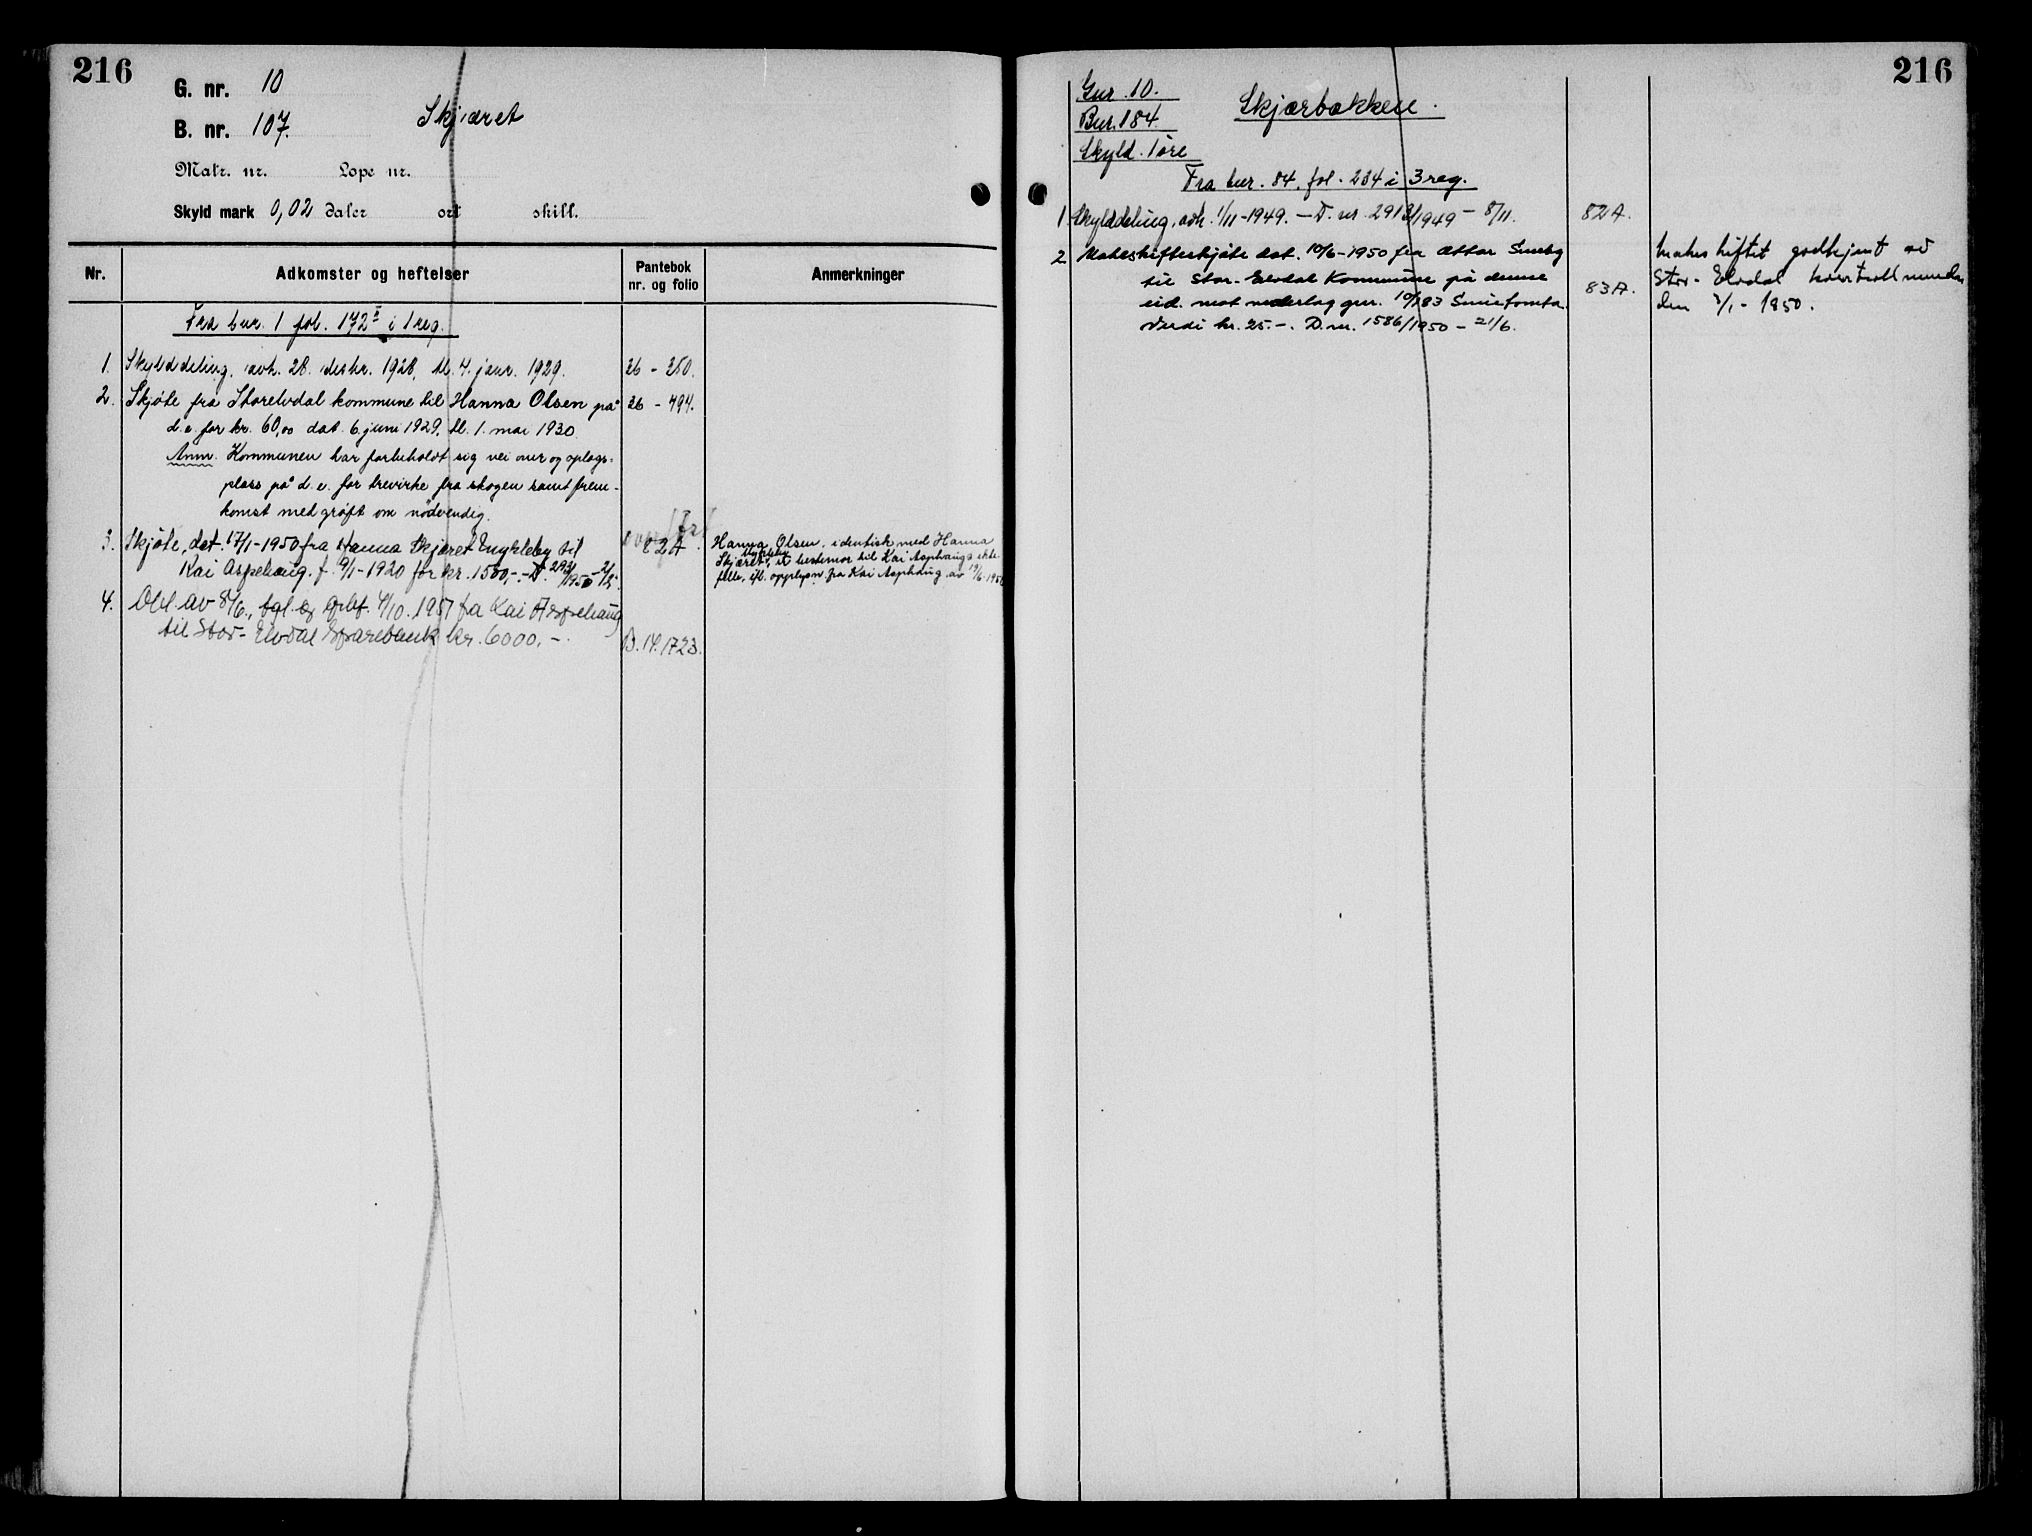 216
G. nr. 10
B. nr. 107.
Skjæret
Matr. nr. Lope nr.
Skyld mark 0,02 daler ort skill.
Nr. Adkomster og heftelser Pantebok nr. og folio Anmerkninger
Fra bnr. 1 fol. 172 I i 1 reg.
1. Skylddeling, avh. 28. desbr. 1928, tl. 4. janr. 1929. 26 - 350.
2. Skjøte fra Storelvdal kommune til Hanna Olsen på 26 - 494.
d.e. for kr. 60,00 dat. 6. juni 1929, tl. 1. mai 1930
Anm. Kommunen har forbeholdt sig vei over og oplags-
plass på d.e. for trevirke fra skogen samt frem-
komst med grøft om nødvendig.
3. Skjøte, dat. 17/1-1950 fra Hanna Skjæret Engkleby til 82A.
Kai Aspehaug, f. 9/1-1920 for kr. 1500,-. - D.
Hanna Olsen, identisk med Hanna
Skjæret, er bestemor til Kai Asphaugs ekte-
felle, ifl. opplysn. fra Kai Asphaug av 19/6-1950
4. Obl. av 8/6., tgl. og 4/10. 1951 fra Kai Aspehaug
til Stor-Elvdal Sparebank kr. 6000.-. B. 14. 1723.
216
Gnr. 10.
Bnr. 184.
Skyld. 1 øre
Skjærbakken.
Fra bnr. 84, fol. 234 i 3 reg.
1. Skylddeling, avh. 1/11-1949. - D. nr. 2912/1949 - 8/11. 82A.
2. Makeskifteskjøte dat. 10/6-1950 fra Ottar Smeby
til Stor-Elvdal Kommune på denne
eid. mot vederlag gnr. 10/183 Smietomta
Verdi kr. 25.-. D. nr. 1586/1950 - 21/6.
83A.
Makeskiftet godkjent av
Stor-Elvdal
den 3/1 - 1950.